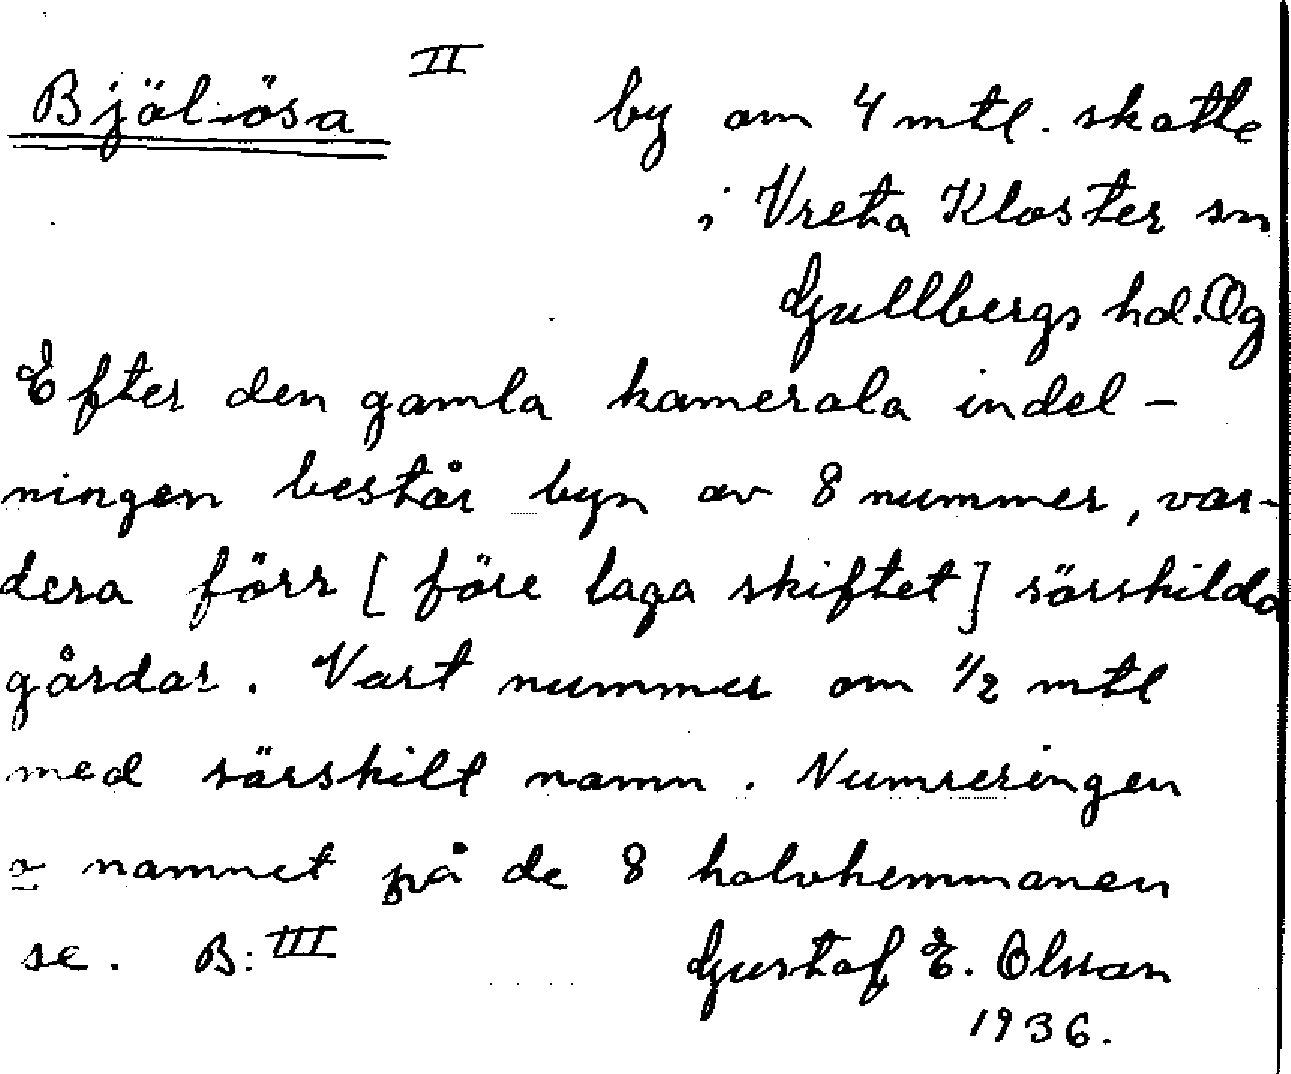 Bjäliösa II by om 4 mtl. skatte
i Vreta Kloster sn
Gullbergs hd. Ög
Efter den gamla kamerala indel-
ningen består byn av 8 nummer, var-
dera förr [ före laga skiftet ] särskilda
gårdar. Vart nummer om 1/2 mtl
med särskilt namn. Numreringen
o namnet på de 8 halvhemmanen
se. B: III Gustaf E. Olsson
1936.